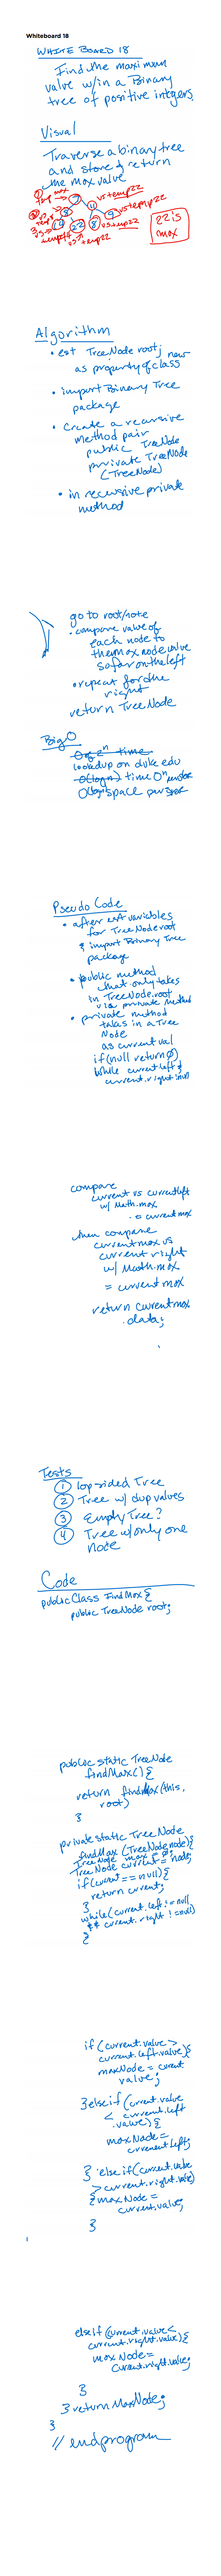 Whiteboard 18
WHITE BOARD 18
Find the maximum
value w/in a Binary
tree of positive integers.
Visual
Traverse a binary tree
and store & return
the max value
22 is
max
Algorithm
• est TreeNode root; new
as property of class
• import Binary Tree
package
• Create a recursive
method pair
public TreeNode
private TreeNode
(TreeNode)
• in recursive private
method
go to root/note
• compare value of
each node to
the max node value
so far on the left
• repeat for the
right
return TreeNode
Big O
looked up on duke edu
O(log n) time
space
Pseudo Code
• after est variables
for TreeNode root
& import Binary Tree
package
• public method
that only takes
in TreeNode.root
via private method
• private method
takes in a Tree
Node
as current val
if(null return 0)
while current.left &
current.right !null
compare
current vs current left
w/ Math.max
= current max
then compare
current max vs
current right
w/ Math.max
= current max
return current max
.data;
Tests
1 lopsided Tree
2 Tree w/ dup values
3 Empty Tree?
4 Tree w/ only one
node
Code
public Class FindMax {
public TreeNode root;
public static TreeNode
findMax() {
return findMax(this.
root)
}
private static TreeNode
findMax (TreeNode node){
TreeNode max = 0;
TreeNode current = node;
if(current == null){
return current;
}
while(current.left != null
&& current.right != null)
{
if (current.value >
current.left.value){
maxNode = current
value;
} else if (current.value
< current.left
.value) {
maxNode =
current.left;
} else if(current.value
> current.right.value)
{ maxNode =
current.value;
}
else if (current.value <
current.right.value){
maxNode =
current.right.value;
}
} return MaxNode;
}
// end program
1